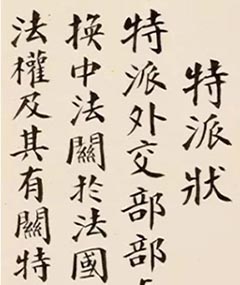 特派狀
特派外交部部
換中法關於法國
法權及其有關特